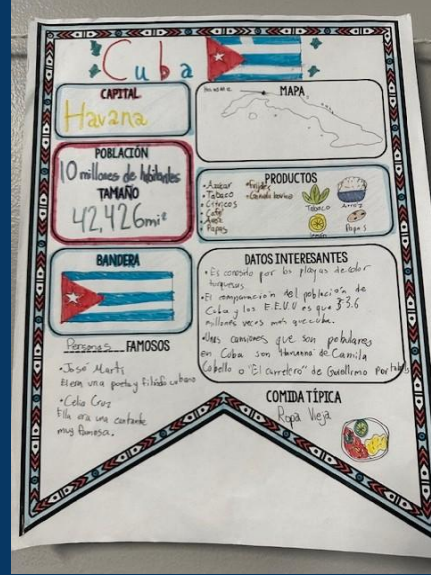 Cuba
CAPITAL
Havana
MAPA
POBLACIÓN
10 millones de habitantes
TAMAÑO
42,426mi²
PRODUCTOS
• Azúcar
• Tabaco
• Cítricos
• Café
• Papas
• Frijoles
• Ganado bovino
Tabaco
Arroz
Papas
BANDERA
DATOS INTERESANTES
• Es conosido por las playas de color
turquesas.
• El comparación del población de
Cuba y los E.E.U.U es que 33.6
millones veces más que cuba.
• Unas cansiones que son populares
en Cuba son "Havanna" de Camila
Cabello o "El carretero" de Guillermo
Personas FAMOSOS
• José Martí
El era una poeta y cubano
• Celia Cruz
Ella era una cantante
muy famosa.
COMIDA TÍPICA
Ropa Vieja